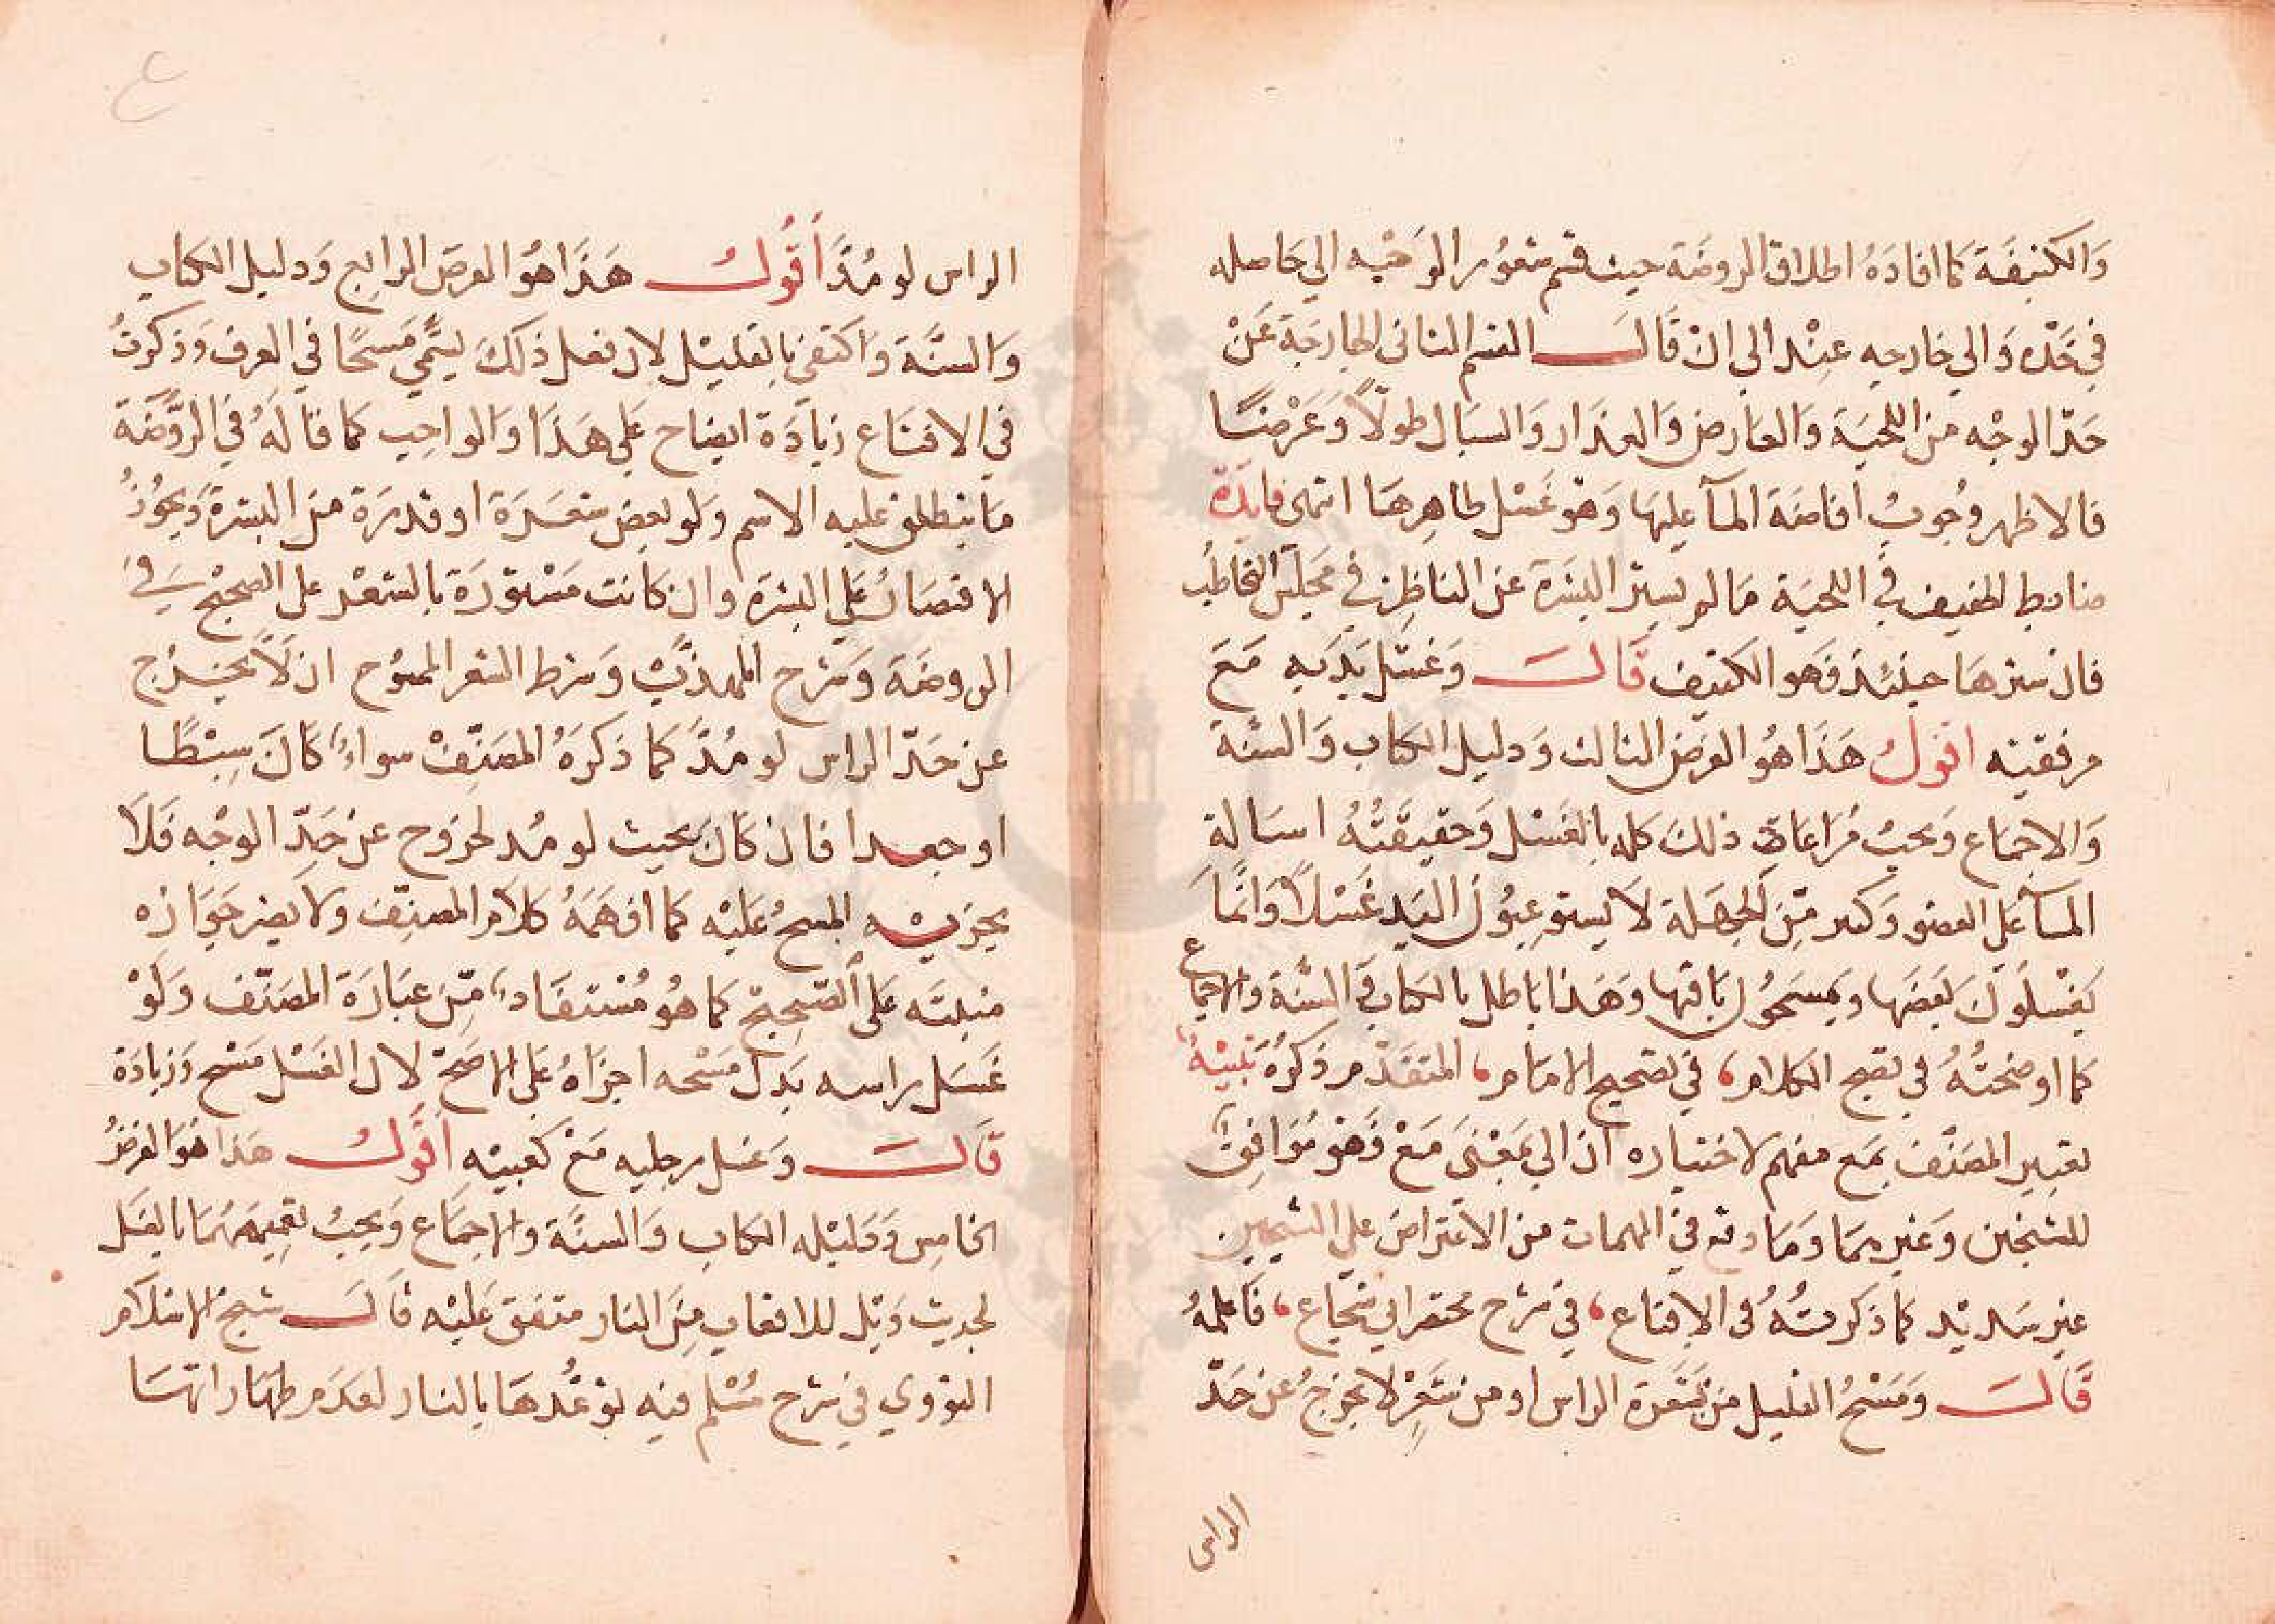 وَالكثيفَة كما افادَهُ اطلاق الروضَة حيث قسّم شعُور الوَجْه الي حَاصله
في حَدّه وَالي خارجه عنْه الي انْ قَالَ القسم الثاني الخارجَة عَنْ
حَدّ الوجْه من اللحيَة وَالعَارض وَالعذَار وَالسبَال طولًا وَعَرْضًا
فالاظهر وجُوبُ افاضَة المآ عليهَا وَهْو غَسْل ظاهِرهَا انتهى فايدَة
ضابط الخفيف في اللحيَة مَا لم يستر البشَرَة عن الناظِر في مَجلس التخاطُب
فان سترهَا حينئذ فَهو الكثيف قَالَ وَغسْل يَدَيه مَعَ
مرفقيه اقولُ هَذَا هُوَ الفرض الثالث وَدليل الكتاب وَالسنَّة
وَالاجمَاع وَيجبُ مُرَاعَاة ذلكَ كله بالغَسْل وَحقيقَتُهُ اسَالة
المَآ عَلي العضو وَكثير مّن الجهَلة لاَ يستوعِبُونَ اليَد غَسْلاً وَانمَّا
يَغْسلُونَ بَعضَهَا وَيمسَحُونَ بَاقيها وَهَذا بَاطل بالكتاب وَالسُّنَّة والاجمَاع
كما اوضحتُهُ في بقيع الكلام، في تصحيح الامَام، المتقدّم ذكرُهُ تَنبيْهُ
تعبير المصَنّف بمَع مفهم لاختياره ان الي بمَعْنَى مَعْ وَهْو مُوَافِق
للشيخين وَغيرهمَا وَمَا وقع في المهمات من الاعتراض علي الشيخين
غير سَديْد كما ذكرتُهُ في الاقناع، في شرح مختصر ابي شجَاع، فَاعلمهُ
قَالَ وَمَسْحُ القليل من بَشَرة الراس او من شَعْر لا يخرجُ عن حَدّ
الراس
ع
الراس لو مُدَّ أقُولُ هَذَا هُوَ الفرضَ الرابِع وَدليل الكتاب
وَالسنَّة وَاكتفي بالقليْل لان فعل ذَلكَ يسَمَّي مَسحًا في العرف وَذكرتُ
في الاقنَاع زيَادَة ايضاح عَلي هَذَا وَالواجب كما قالَهُ في الرَّوْضَة
مَا ينطلق عليه الاسم وَلو بعض شعَرَة او قدرَة من البشرَة وَيجُوزُ
الاقتصَارُ عَلي البشرَة وان كانت مَسْتوْرَة بالشعْر على الصحيْح في
الروضَة وَشرح المهذّبْ وَشرط الشعر الممسُوح ان لاَ يخْرُج
عن حَدّ الراس لو مُدَّ كما ذَكرَهُ المصَنّفْ سواءً كَانَ سِبْطًا
او جعدا فان كَانَ بحيث لو مُد لخروح عن حَدّ الوجْه فَلاَ
يجزيْه المسحُ عَليْه كما افهَمَهُ كلاَم المصنّف ولا يضر جَوَازه
منبته عَلى الصّحِيْح كما هُو مُسْتفَاد، مّن عبَارَة المصَنّف وَلَوْ
غَسَل راسه بَدَل مَسْحه اجزَاهُ عَلى الاصَحّ لان الغَسْل مَسْح وَزيادَة
قَالَ وَغسل رجليه مَعْ كعبيْهِ أقُولُ هَذَا هُوَ الفرضُ
الخامس وَدَليْله الكتاب وَالسنَّة والاجمَاع وَيجبُ تعميمَهُمَا بالغسَل
لحديث وَيْل للاعقاب مِنَ النار متفق عَليْه قَالَ شيخ الاسْلاَم
النوَوي في شرح مُسْلم فيه توعُّدهَا بالنار لعدَم طهَارتهَا